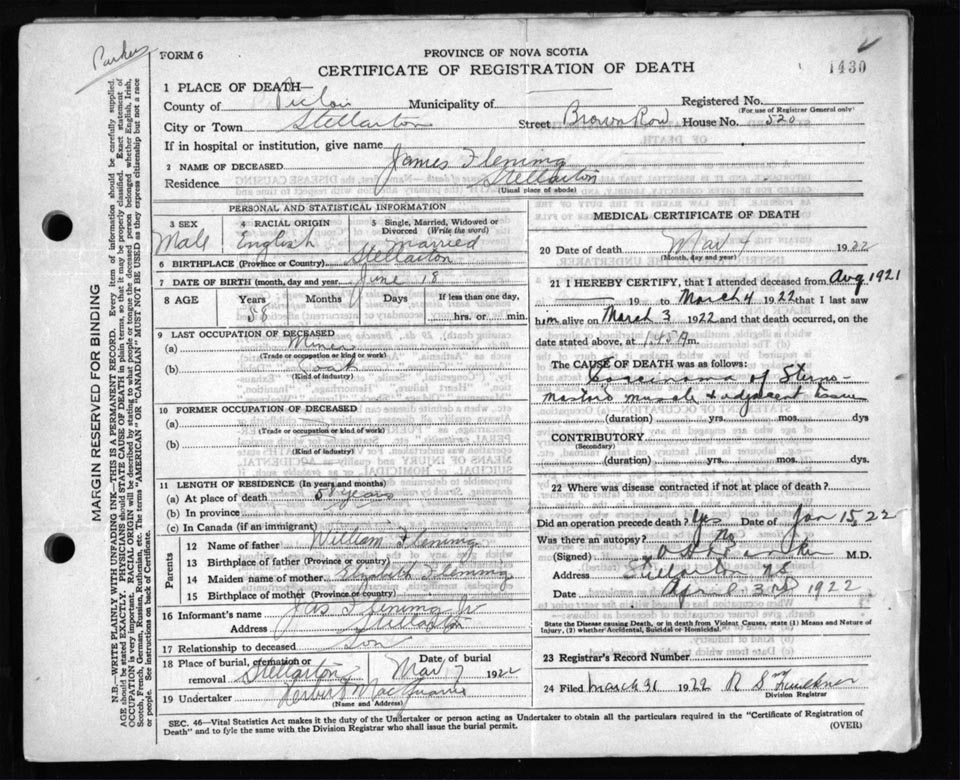 Parker
FORM 6
PROVINCE OF NOVA SCOTIA
CERTIFICATE OF REGISTRATION OF DEATH
1430
1 PLACE OF DEATH—
County of Pictou Municipality of Registered No.
(For use of Registrar General only)
City or Town Stellarton Street Brown Row House No. 520
If in hospital or institution, give name
2 NAME OF DECEASED James Fleming
Residence Stellarton
(Usual place of abode)
PERSONAL AND STATISTICAL INFORMATION
3 SEX 4 RACIAL ORIGIN 5 Single, Married, Widowed or Divorced (Write the word)
Male English Married
6 BIRTHPLACE (Province or Country) Stellarton
7 DATE OF BIRTH (month, day and year) June 18
8 AGE Years Months Days If less than one day,
58 hrs. or min.
9 LAST OCCUPATION OF DECEASED
(a) Miner
(Trade or occupation or kind or work)
(b) Coal
(Kind of industry)
10 FORMER OCCUPATION OF DECEASED
(a)
(Trade or occupation or kind of work)
(b)
(Kind of industry)
11 LENGTH OF RESIDENCE (In years and months)
(a) At place of death 58 years
(b) In province
(c) In Canada (if an immigrant)
Parents
12 Name of father William Fleming
13 Birthplace of father (Province or country)
14 Maiden name of mother Elizabeth Flemming
15 Birthplace of mother (Province or country)
16 Informant's name Jas Fleming Jr
Address Stellarton
17 Relationship to deceased Son
18 Place of burial, cremation or removal Stellarton Date of burial Mar 7 1922
19 Undertaker Herbert
(Name and Address)
MEDICAL CERTIFICATE OF DEATH
20 Date of death Mar 4 1922
(Month, day and year)
21 I HEREBY CERTIFY, that I attended deceased from Aug 1921
19 to March 4 1922 that I last saw
him alive on March 3 1922 and that death occurred, on
date stated above, at m.
The CAUSE OF DEATH was as follows:
Carcinoma of Sterno-
Mastoid muscle & adjacent tissue
(duration) yrs. mos. dys
CONTRIBUTORY
(Secondary)
(duration) yrs. mos. dys
22 Where was disease contracted if not at place of death?
Did an operation precede death? Yes Date of Jan 15, 22
Was there an autopsy? No
(Signed) M.D.
Address Stellarton NS
Date April 3rd 1922
State the Disease causing Death, or in death from Violent Causes, state (1) Means and Nature of
Injury, (2) whether Accidental, Suicidal or Homicidal.
23 Registrar's Record Number
24 Filed March 31 1922 R S Faulkner
Division Registrar
SEC. 46—Vital Statistics Act makes it the duty of the Undertaker or person acting as Undertaker to obtain all the particulars required in the "Certificate of Registration of
Death" and to fyle the same with the Division Registrar who shall issue the burial permit.
(OVER)
MARGIN RESERVED FOR BINDING
N.B.—WRITE PLAINLY WITH UNFADING INK—THIS IS A PERMANENT RECORD. Every item of information should be carefully supplied.
AGE should be stated EXACTLY. PHYSICIANS should STATE CAUSE OF DEATH in plain terms, so that it may be properly classified. Exact statement of
OCCUPATION is very important. RACIAL ORIGIN will be described by stating to what people or tongue the deceased person belonged whether English, Irish,
Scotch, French, German, Russian, Ruthenian, etc. The terms "AMERICAN" or "CANADIAN" MUST NOT BE USED as they express citizenship but not a race
or people. See instructions on back of Certificate.